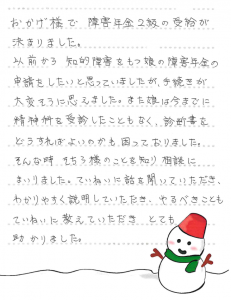 おかげ様で、障害年金2級の受給が
決まりました。
以前から 知的障害をもつ娘の障害年金の
申請をしたいと思っていましたが、手続きが
大変そうに思えました。また娘は今までに
精神科を受診したこともなく、診断書を
どうすればよいのかも 困っておりました。
そんな時、そちら様のことを知り 相談に
まいりました。ていねいに話を聞いていただき、
わかりやすく説明していただき、やるべきことも
ていねいに教えていただき とても
助かりました。